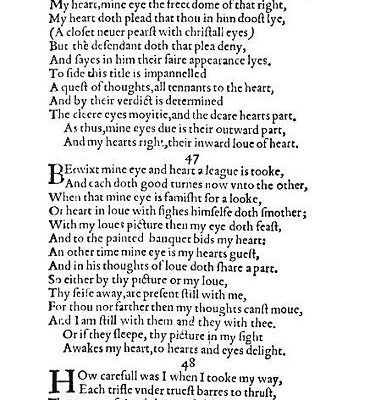 My heart,mine eye the freedome of that right,
My heart doth plead that thou in him dooſt lye,
(A cloſet neuer pearſt with chriſtall eyes)
But the defendant doth that plea deny,
And ſayes in him their faire appearance lyes.
To ſide this title is impannelled
A queſt of thoughts,all tennants to the heart,
And by their verdict is determined
The cleere eyes moyitie,and the deare hearts part.
As thus,mine eyes due is their outward part,
And my hearts right,their inward loue of heart.
47
BEtwixt mine eye and heart a league is tooke,
And each doth good turnes now vnto the other,
When that mine eye is famiſht for a looke,
Or heart in loue with ſighes himſelfe doth ſmother;
With my loues picture then my eye doth feaſt,
And to the painted banquet bids my heart:
An other time mine eye is my hearts gueſt,
And in his thoughts of loue doth ſhare a part.
So either by thy picture or my loue,
Thy ſeife away,are preſent ſtill with me,
For thou nor farther then my thoughts canſt moue,
And I am ſtill with them and they with thee.
Or if they ſleepe, thy picture in my ſight
Awakes my heart,to hearts and eyes delight.
48
HOw carefull was I when I tooke my way,
Each trifle vnder trueſt barres to thruſt,